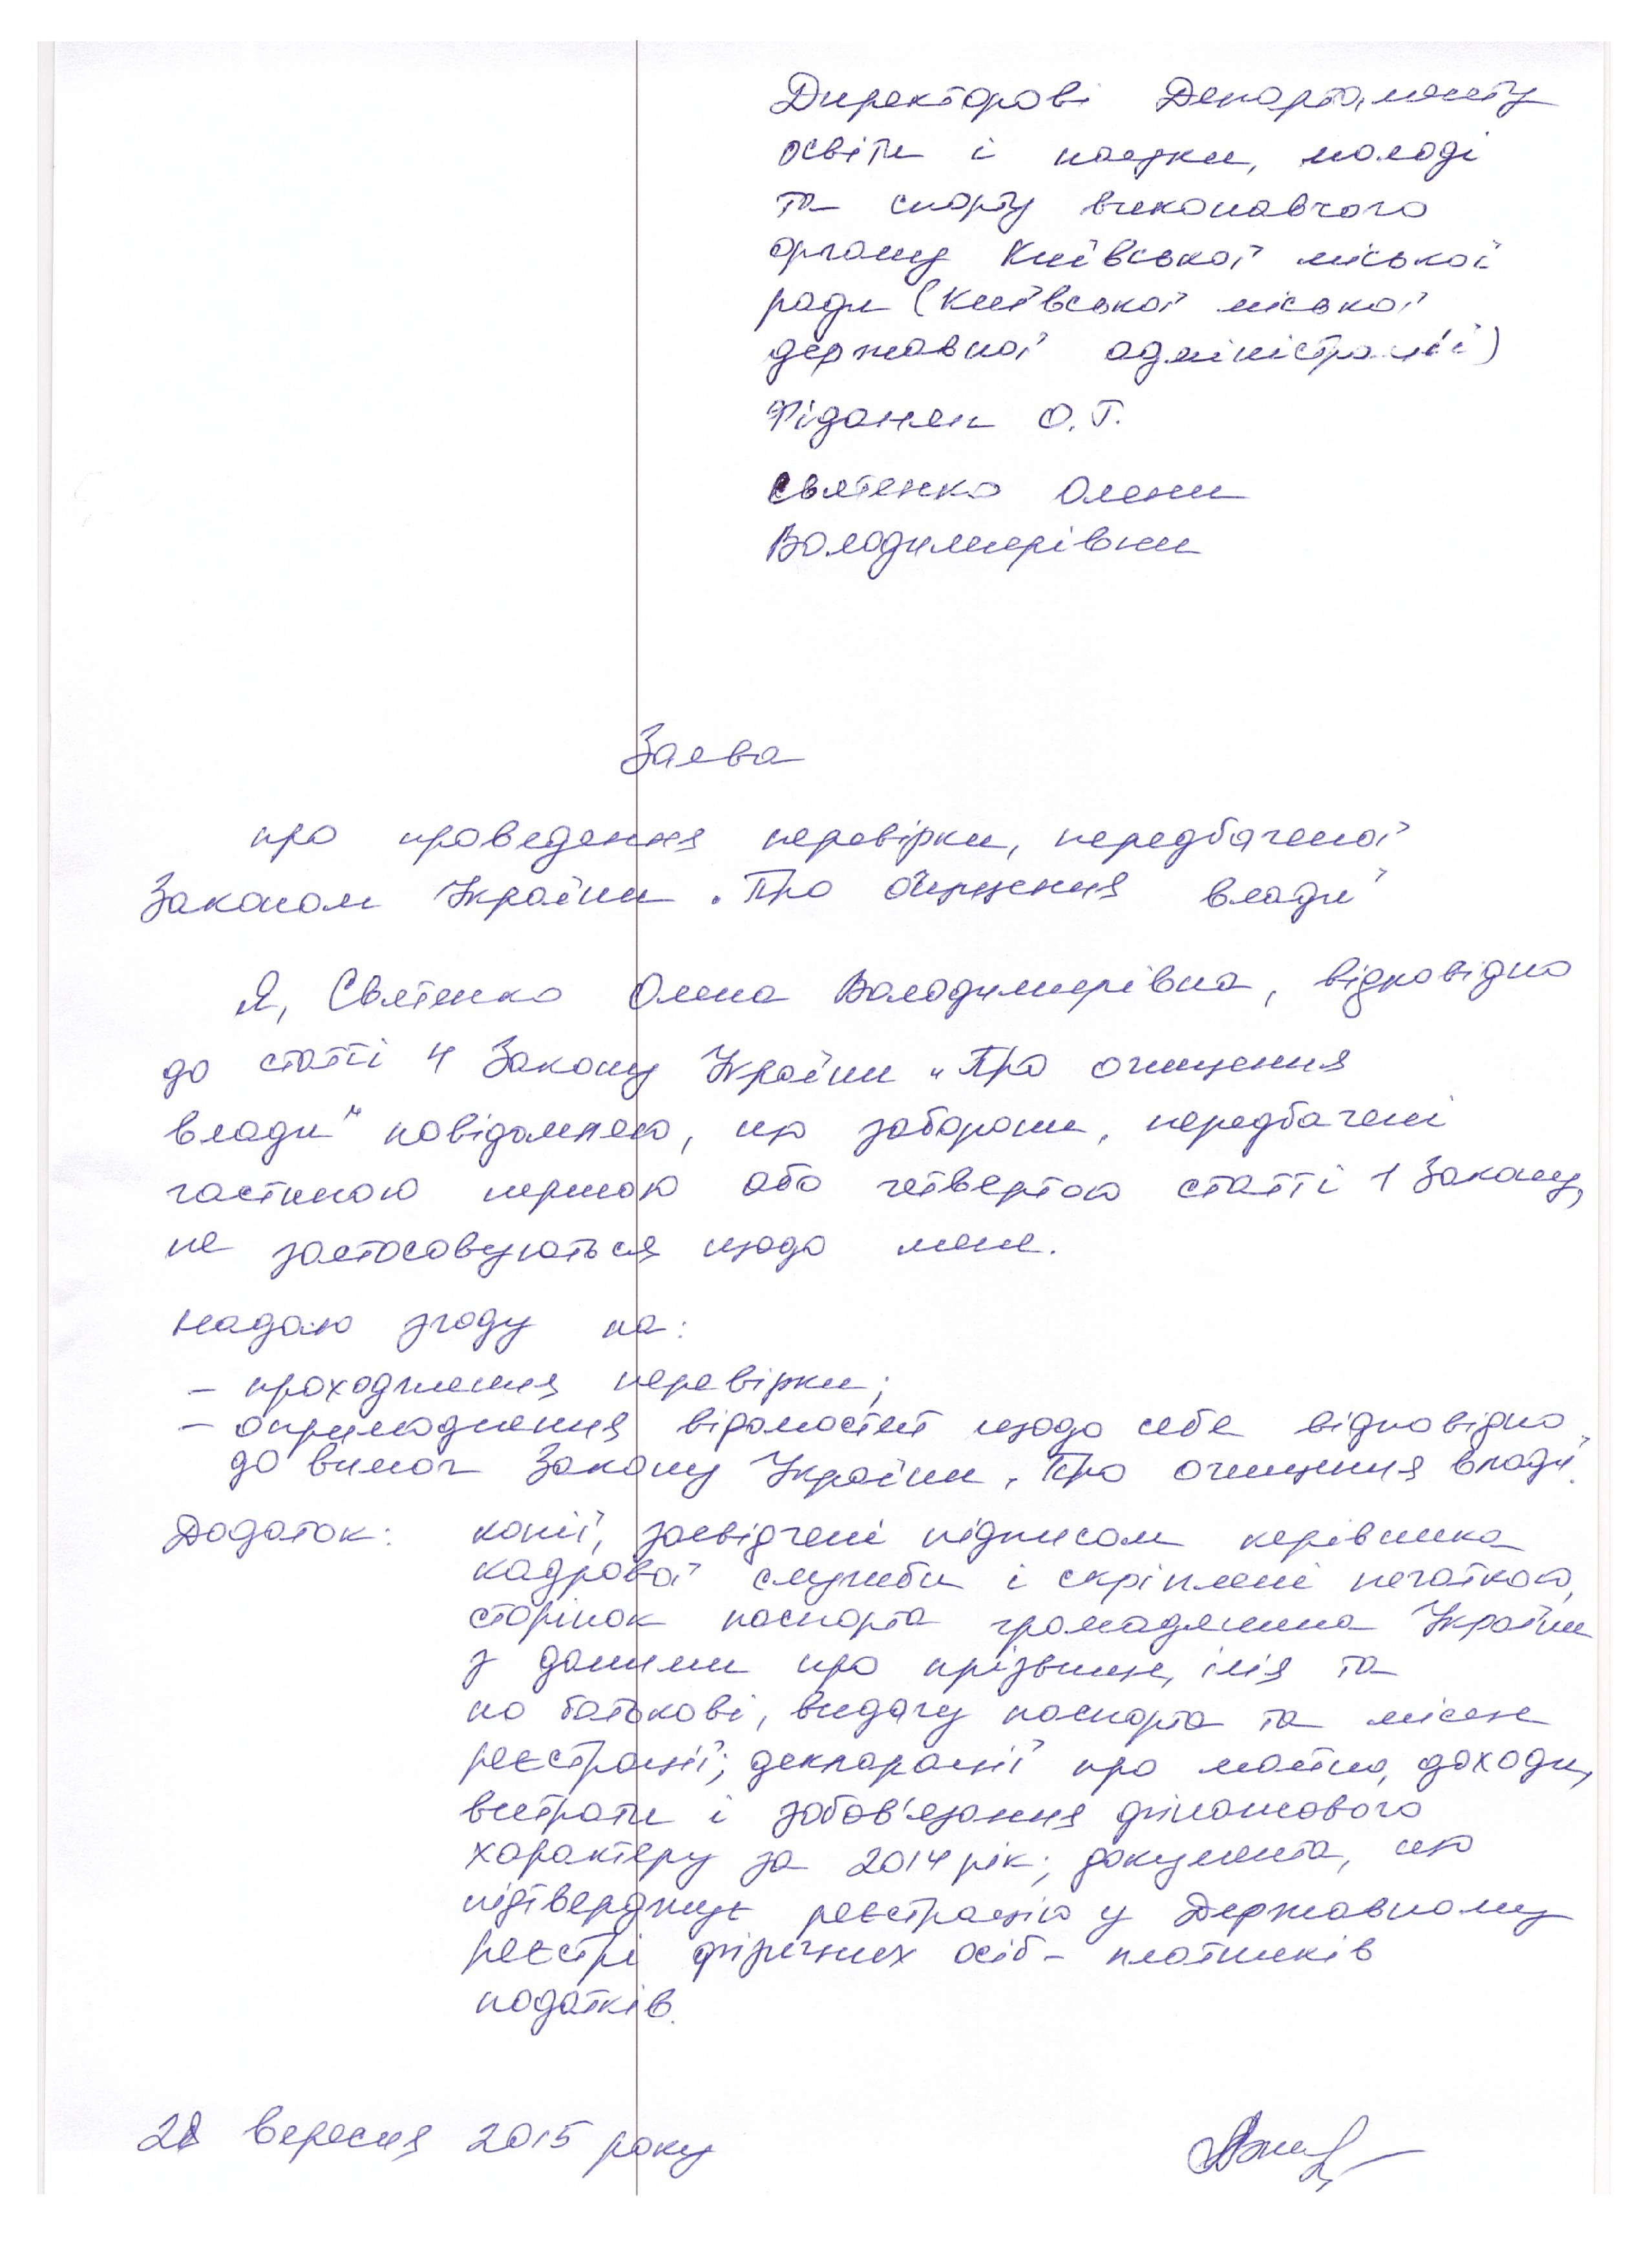 Директорові Департаменту
освіти і науки, молоді
та спорту виконавчого
органу Київської міської
ради (Київської міської
державної адміністрації)
Фіданян О.Г.
Святенко Олени
Володимирівни
Заява
про проведення перевірки, передбаченої
Законом України „Про очищення влади"
Я, Святенко Олена Володимирівна, відповідно
до статті 4 Закону України „Про очищення
влади" повідомляю, що заборони, передбачені
частиною першою або четвертою статті 1 Закону,
не застосовуються щодо мене.
Надаю згоду на:
- проходження перевірки;
- оприлюднення відомостей щодо себе відповідно
до вимог Закону України „Про очищення влади".
Додаток: копії, засвідчені підписом керівника
кадрової служби і скріплені печаткою,
сторінок паспорта громадянина України
з даними про прізвище, ім'я та
по батькові, видачу паспорта та місце
реєстрації; декларації про майно, доходи,
витрати і зобов'язання фінансового
характеру за 2014 рік; документа, що
підтверджує реєстрацію у Державному
реєстрі фізичних осіб - платників
податків.
28 вересня 2015 року